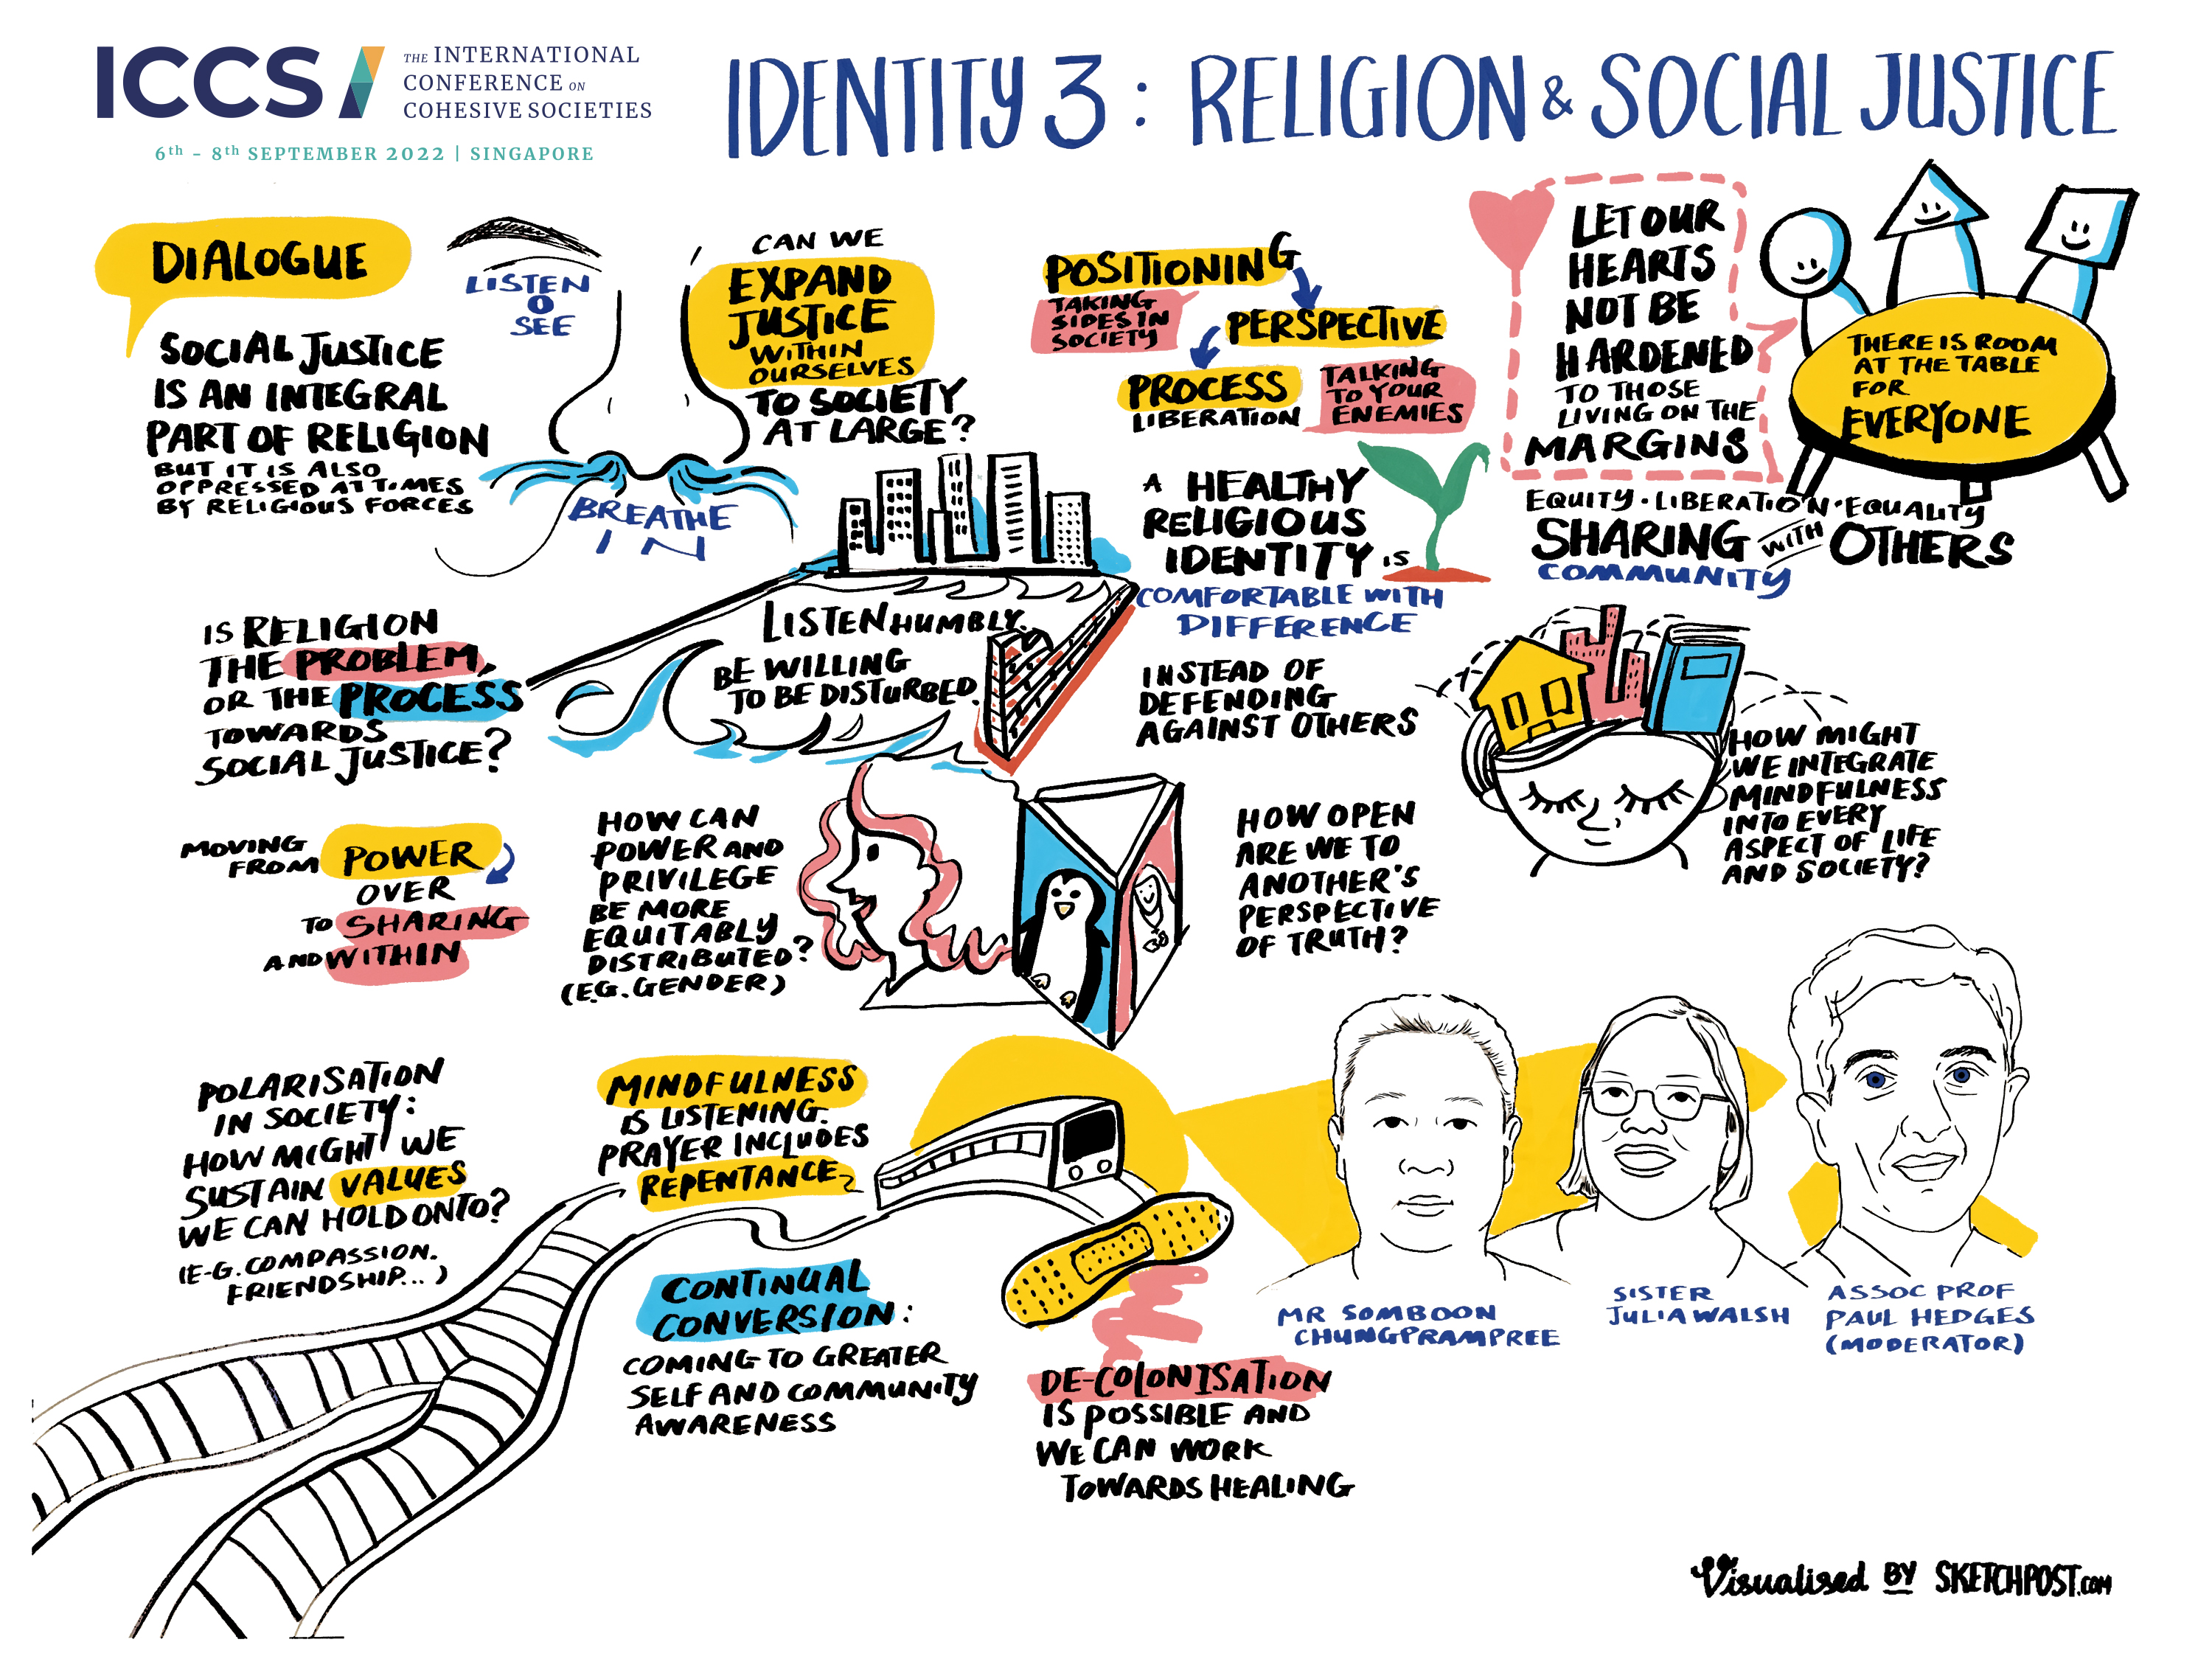 ICCS
THE INTERNATIONAL
CONFERENCE ON
COHESIVE SOCIETIES
6th - 8th SEPTEMBER 2022 | SINGAPORE
IDENTITY 3 : RELIGION & SOCIAL JUSTICE
DIALOGUE
SOCIAL JUSTICE
IS AN INTEGRAL
PART OF RELIGION
BUT IT IS ALSO
OPPRESSED AT TIMES
BY RELIGIOUS FORCES
LISTEN
O
SEE
BREATHE
IN
CAN WE
EXPAND
JUSTICE
WITHIN
OURSELVES
TO SOCIETY
AT LARGE?
POSITIONING
TAKING
SIDES IN
SOCIETY
PERSPECTIVE
PROCESS
LIBERATION
TALKING
TO YOUR
ENEMIES
LET OUR
HEARTS
NOT BE
HARDENED
TO THOSE
LIVING ON THE
MARGINS
THERE IS ROOM
AT THE TABLE
FOR
EVERYONE
EQUITY · LIBERATION · EQUALITY
SHARING WITH OTHERS
COMMUNITY
A HEALTHY
RELIGIOUS
IDENTITY IS
COMFORTABLE WITH
DIFFERENCE
INSTEAD OF
DEFENDING
AGAINST OTHERS
LISTEN HUMBLY.
BE WILLING
TO BE DISTURBED.
IS RELIGION
THE PROBLEM,
OR THE PROCESS
TOWARDS
SOCIAL JUSTICE?
MOVING
FROM POWER
OVER
TO SHARING
AND WITHIN
HOW CAN
POWER AND
PRIVILEGE
BE MORE
EQUITABLY
DISTRIBUTED?
(EG. GENDER)
HOW OPEN
ARE WE TO
ANOTHER'S
PERSPECTIVE
OF TRUTH?
HOW MIGHT
WE INTEGRATE
MINDFULNESS
INTO EVERY
ASPECT OF LIFE
AND SOCIETY?
POLARISATION
IN SOCIETY:
HOW MIGHT WE
SUSTAIN VALUES
WE CAN HOLD ONTO?
(E-G. COMPASSION.
FRIENDSHIP...)
MINDFULNESS
IS LISTENING.
PRAYER INCLUDES
REPENTANCE
CONTINUAL
CONVERSION:
COMING TO GREATER
SELF AND COMMUNITY
AWARENESS
DE-COLONISATION
IS POSSIBLE AND
WE CAN WORK
TOWARDS HEALING
MR SOMBOON
CHUNGPRAMPREE
SISTER
JULIA WALSH
ASSOC PROF
PAUL HEDGES
(MODERATOR)
Visualised BY SKETCHPOST.COM